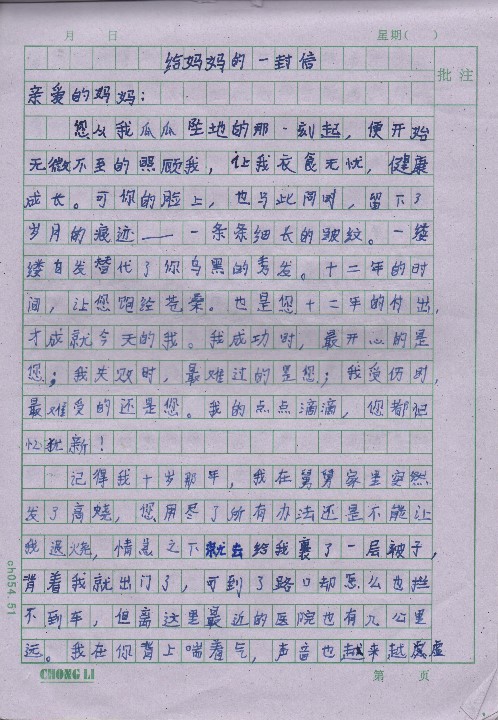 月 日 星期( )
给妈妈的一封信
批注
亲爱的妈妈：
您从我瓜瓜坠地的那一刻起，便开始
无微不至的照顾我，让我衣食无忧，健康
成长。可你的脸上，也与此同时，留下了
岁月的痕迹——一条条细长的皱纹。一缕
缕白发替代了你乌黑的秀发。十二年的时
间，让您饱经苍桑。也是您十二年的付出，
才成就今天的我。我成功时，最开心的是
您；我失败时，最难过的是您；我受伤时，
最难受的还是您。我的点点滴滴，您都记
忆犹新！
记得我十岁那年，我在舅舅家里突然
发了高烧，您用尽了所有办法还是不能让
我退烧，情急之下就去给我裹了一层被子，
背着我就出门了，可到了路口却怎么也拦
不到车，但离这里最近的医院也有九公里
远。我在你背上喘着气，声音也越来越虚虚
ch054.51
CHONG LI 第 页